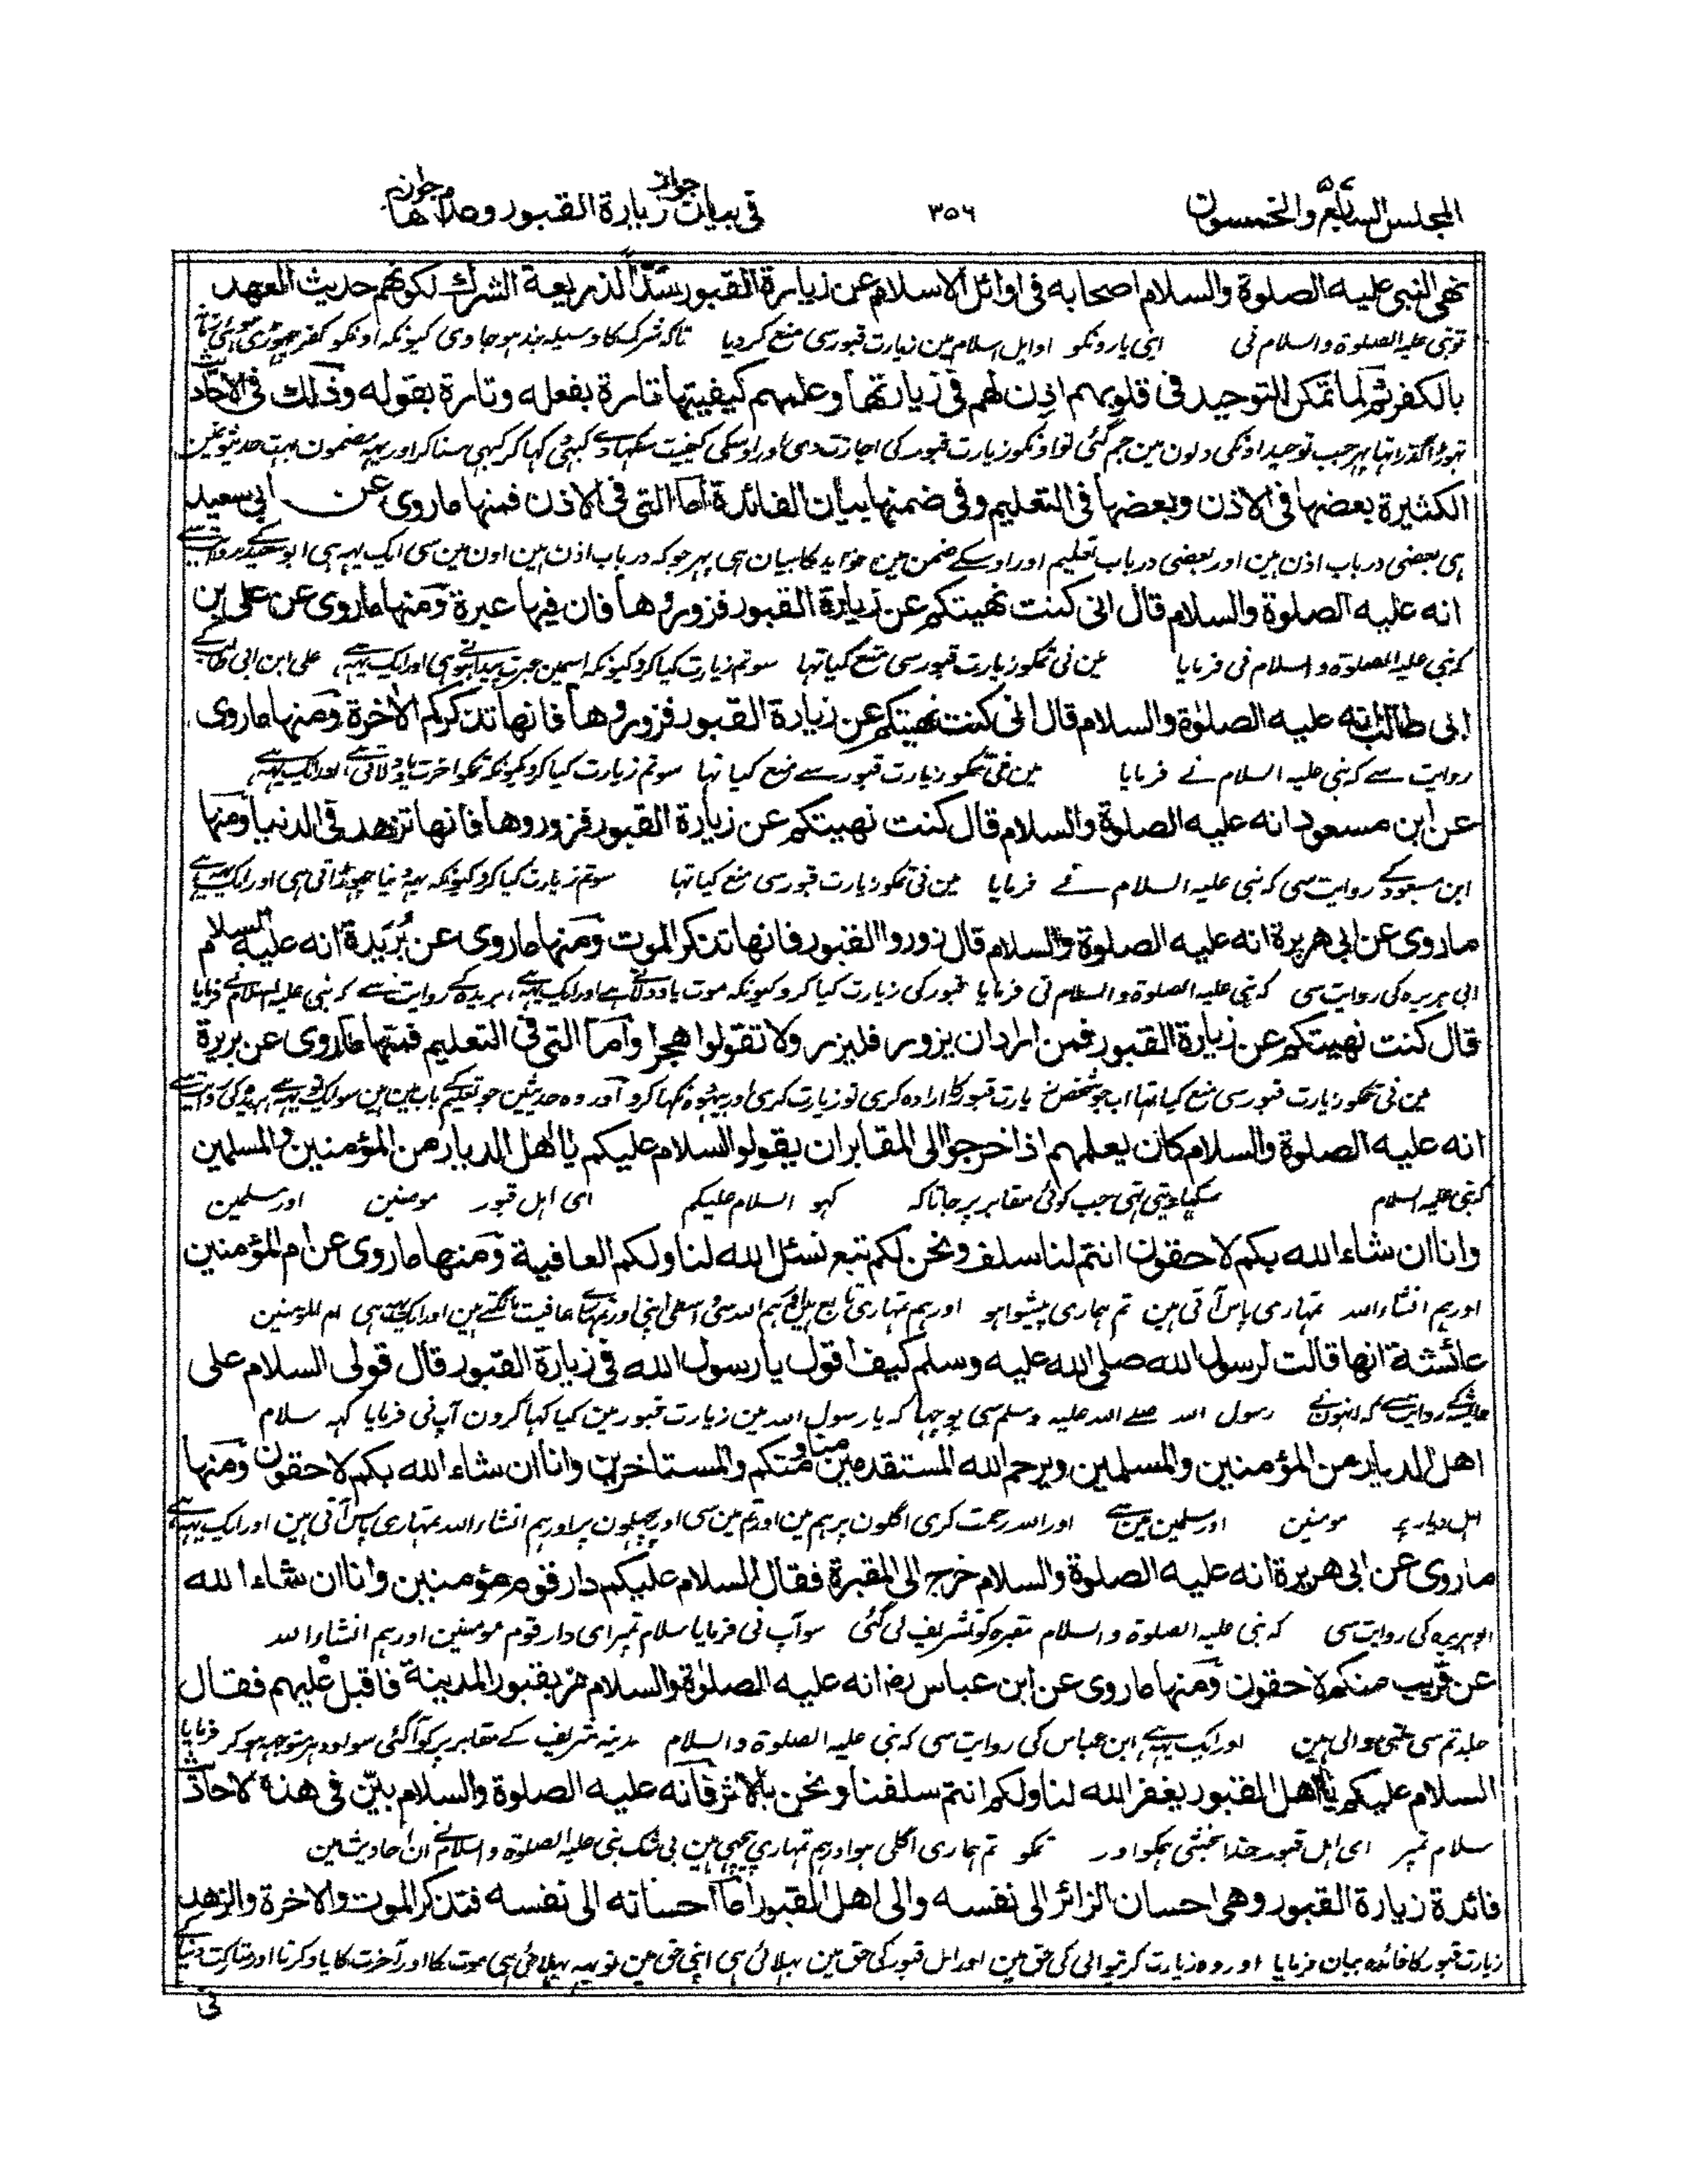 المجلس السابع والخمسون ۵۷
۳۵۶
فی بیان جواز زیارة القبور وعدم جوازها
نهی النبی علیه الصلوة والسلام اصحابه فی اوائل الاسلام عن زیارة القبور سدًّا لذریعة الشرك لکونهم حدیث العهد
تو نبی علیہ الصلوة والسلام نی اپنی یارونکو اوایل اسلام مین زیارت قبور سی منع کردیا تاکہ شرک کا وسیلہ بند ہو جاوی کیونکہ اونکو کفر چھوڑی ہوئی
بالکفر ثم لما تمکن التوحید فی قلوبهم اذن لهم فی زیارتها وعلمهم کیفیتها تارة بفعله وتارة بقوله وذلك فی الاحادیث
تہوڑا گذرا تہا پہر جب توحید اونکی دلون مین جم گئی تو اونکو زیارت قبور کی اجازت دی اور اوسکی کیفیت سکہادی کبہی کہا کر کبہی سنا کر اور یہہ مضمون بہت حدیثونمین
الکثیرة بعضها فی الاذن وبعضها فی التعلیم وفی ضمنها بیان الفائدة اما التی فی الاذن فمنها ما روی عن ابی سعید
ہی بعضی در باب اذن ہین اور بعضی در باب تعلیم اور اوسکے ضمن مین فواید کا بیان ہی پہر جو کہ در باب اذن ہین اون مین سی ایک یہہ ہی ابو سعید کے روایت سے
انه علیه الصلوة والسلام قال انی کنت نهیتکم عن زیارة القبور فزوروها فان فیها عبرة ومنها ما روی عن علی بن
کہ نبی علیہ الصلوة والسلام نی فرمایا مین نی تمکو زیارت قبور سی منع کیا تہا سو تم زیارت کیا کرو کیونکہ اسمین عبرت پیدا ہوتی ہی اور ایک یہہ ہے علی ابن ابی طالب کے
ابی طالب انه علیه الصلوة والسلام قال انی کنت نهیتکم عن زیارة القبور فزوروها فانها تذکرکم الاخرة ومنها ما روی
روایت سے کہ نبی علیہ السلام نے فرمایا مین نی تمکو زیارت قبور سے منع کیا تہا سو تم زیارت کیا کرو کیونکہ تمکو اخرت یاد دلاتی ہے اور ایک یہہ ہے
عن ابن مسعود انه علیه الصلوة والسلام قال کنت نهیتکم عن زیارة القبور فزوروها فانها تزهد فی الدنیا ومنها
ابن مسعود کے روایت سی کہ نبی علیہ السلام نے فرمایا مین نی تمکو زیارت قبور سی منع کیا تہا سو تم زیارت کیا کرو کیونکہ یہہ دنیا چھوڑاتی ہی اور ایک یہہ ہے
ما روی عن ابی هریرة انه علیه الصلوة والسلام قال زوروا القبور فانها تذکر الموت ومنها ما روی عن بُرَیدة انه علیه السلام
ابی ہریرہ کی روایت سی کہ نبی علیہ الصلوة والسلام نی فرمایا قبور کی زیارت کیا کرو کیونکہ موت یاد دلاتا ہے اور ایک یہہ ہے بریدہ کے روایت سے کہ نبی علیہ السلام نے فرمایا
قال کنت نهیتکم عن زیارة القبور فمن اراد ان یزور فلیزر ولا تقولوا هجرا واما التی فی التعلیم فمنها ما روی عن بریرة
مین نی تمکو زیارت قبور سی منع کیا تہا اب جو شخص زیارت قبور کا ارادہ کری تو زیارت کری اور بیہودہ نکہا کرو اور وہ حدیثین جو تعلیم کے باب مین ہین سو ایک تو یہہ ہے بریدہ کی روایت سے
انه علیه الصلوة والسلام کان یعلمهم اذا خرجوا الی المقابر ان یقولوا السلام علیکم یا اهل الدیار من المؤمنین والمسلمین
کہ نبی علیہ السلام سکہا دیتی تہی جب کوئی مقابر پر جاتا کہ کہو السلام علیکم ای اہل قبور مومنین اور مسلمین
وانا ان شاء الله بکم لاحقون انتم لنا سلف ونحن لکم تبع نسئل الله لنا ولکم العافیة ومنها ما روی عن ام المؤمنین
اور ہم انشاء اللہ تمہاری پاس آتی ہین تم ہماری پیشوا ہو اور ہم تمہاری تابع ہین ہم اللہ سی اپنی اور عافیت مانگتے ہین اور ایک یہہ ہی ام المومنین
عائشة انها قالت لرسول الله صلی الله علیه وسلم کیف اقول یا رسول الله فی زیارة القبور قال قولی السلام علی
عایشہ کے روایت سے کہ انہون نے رسول اللہ صلے اللہ علیہ وسلم سی پوچہا کہ یا رسول اللہ مین زیارت قبور مین کیا کہا کرون آپ نی فرمایا کہہ سلام
اهل الدیار من المؤمنین والمسلمین ویرحم الله المستقدمین منا ومنکم والمستاخرین وانا ان شاء الله بکم لاحقون ومنها
اہل دیار پر مومنین اور مسلمین مین سے اور اللہ رحمت کری اگلون پر ہم مین اور تم مین سی اور پچہلون پر اور ہم انشاء اللہ تمہاری پاس آتی ہین اور ایک یہہ ہے
ما روی عن ابی هریرة انه علیه الصلوة والسلام خرج الی المقبرة فقال السلام علیکم دار قوم مؤمنین وانا ان شاء الله
ابو ہریرہ کی روایت سی کہ نبی علیہ الصلوة والسلام مقبرہ کو تشریف لی گئی سو آپ نی فرمایا سلام تمپر ای دار قوم مومنین اور ہم انشاء اللہ
عن قریب منکم لاحقون ومنها ما روی عن ابن عباس رض انه علیه الصلوة والسلام مر بقبور المدینة فاقبل علیهم فقال
جلد تم سی ملنی والی ہین اور ایک یہہ ہے ابن عباس کی روایت سی کہ نبی علیہ الصلوة والسلام مدینہ شریف کے مقابر پر کو آ گئی سو اودہر متوجہ ہو کر فرمایا
السلام علیکم یا اهل القبور یغفر الله لنا ولکم انتم سلفنا ونحن بالاثر فانه علیه الصلوة والسلام بیّن فی هذه الاحادیث
سلام تمپر ای اہل قبور خدا بخشی ہمکو اور تمکو تم ہماری اگلی ہو اور ہم تمہاری پیچہی ہین بی شک نبی علیہ الصلوة والسلام نے ان احادیث مین
فائدة زیارة القبور وهی احسان الزائر الی نفسه والی اهل القبور اما احسانه الی نفسه فتذکر الموت والاخرة والزهد
زیارت قبور کا فائدہ بیان فرمایا اور وہ زیارت کرنیوالی کی حق مین اور اہل قبور کی حق مین بہلائی ہی اپنی حق مین تو یہہ بہلائی ہی موت کا اور آخرت کا یاد کرنا اور
فی